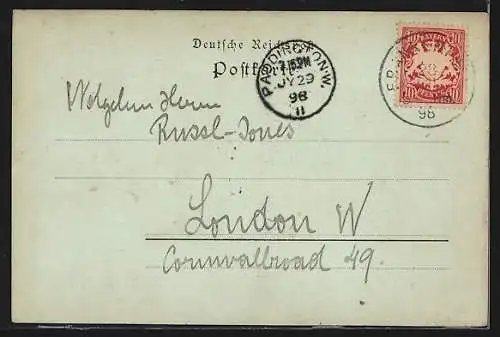 Deutsche Reichspost
Postkarte
PADDINGTON.W.
7.15PM
JY 29
98
11
BAYERN
10 PFENNIG 10
98
Wolgeborn Herrn
Russl-Jones
London W
Cornwallroad 49.